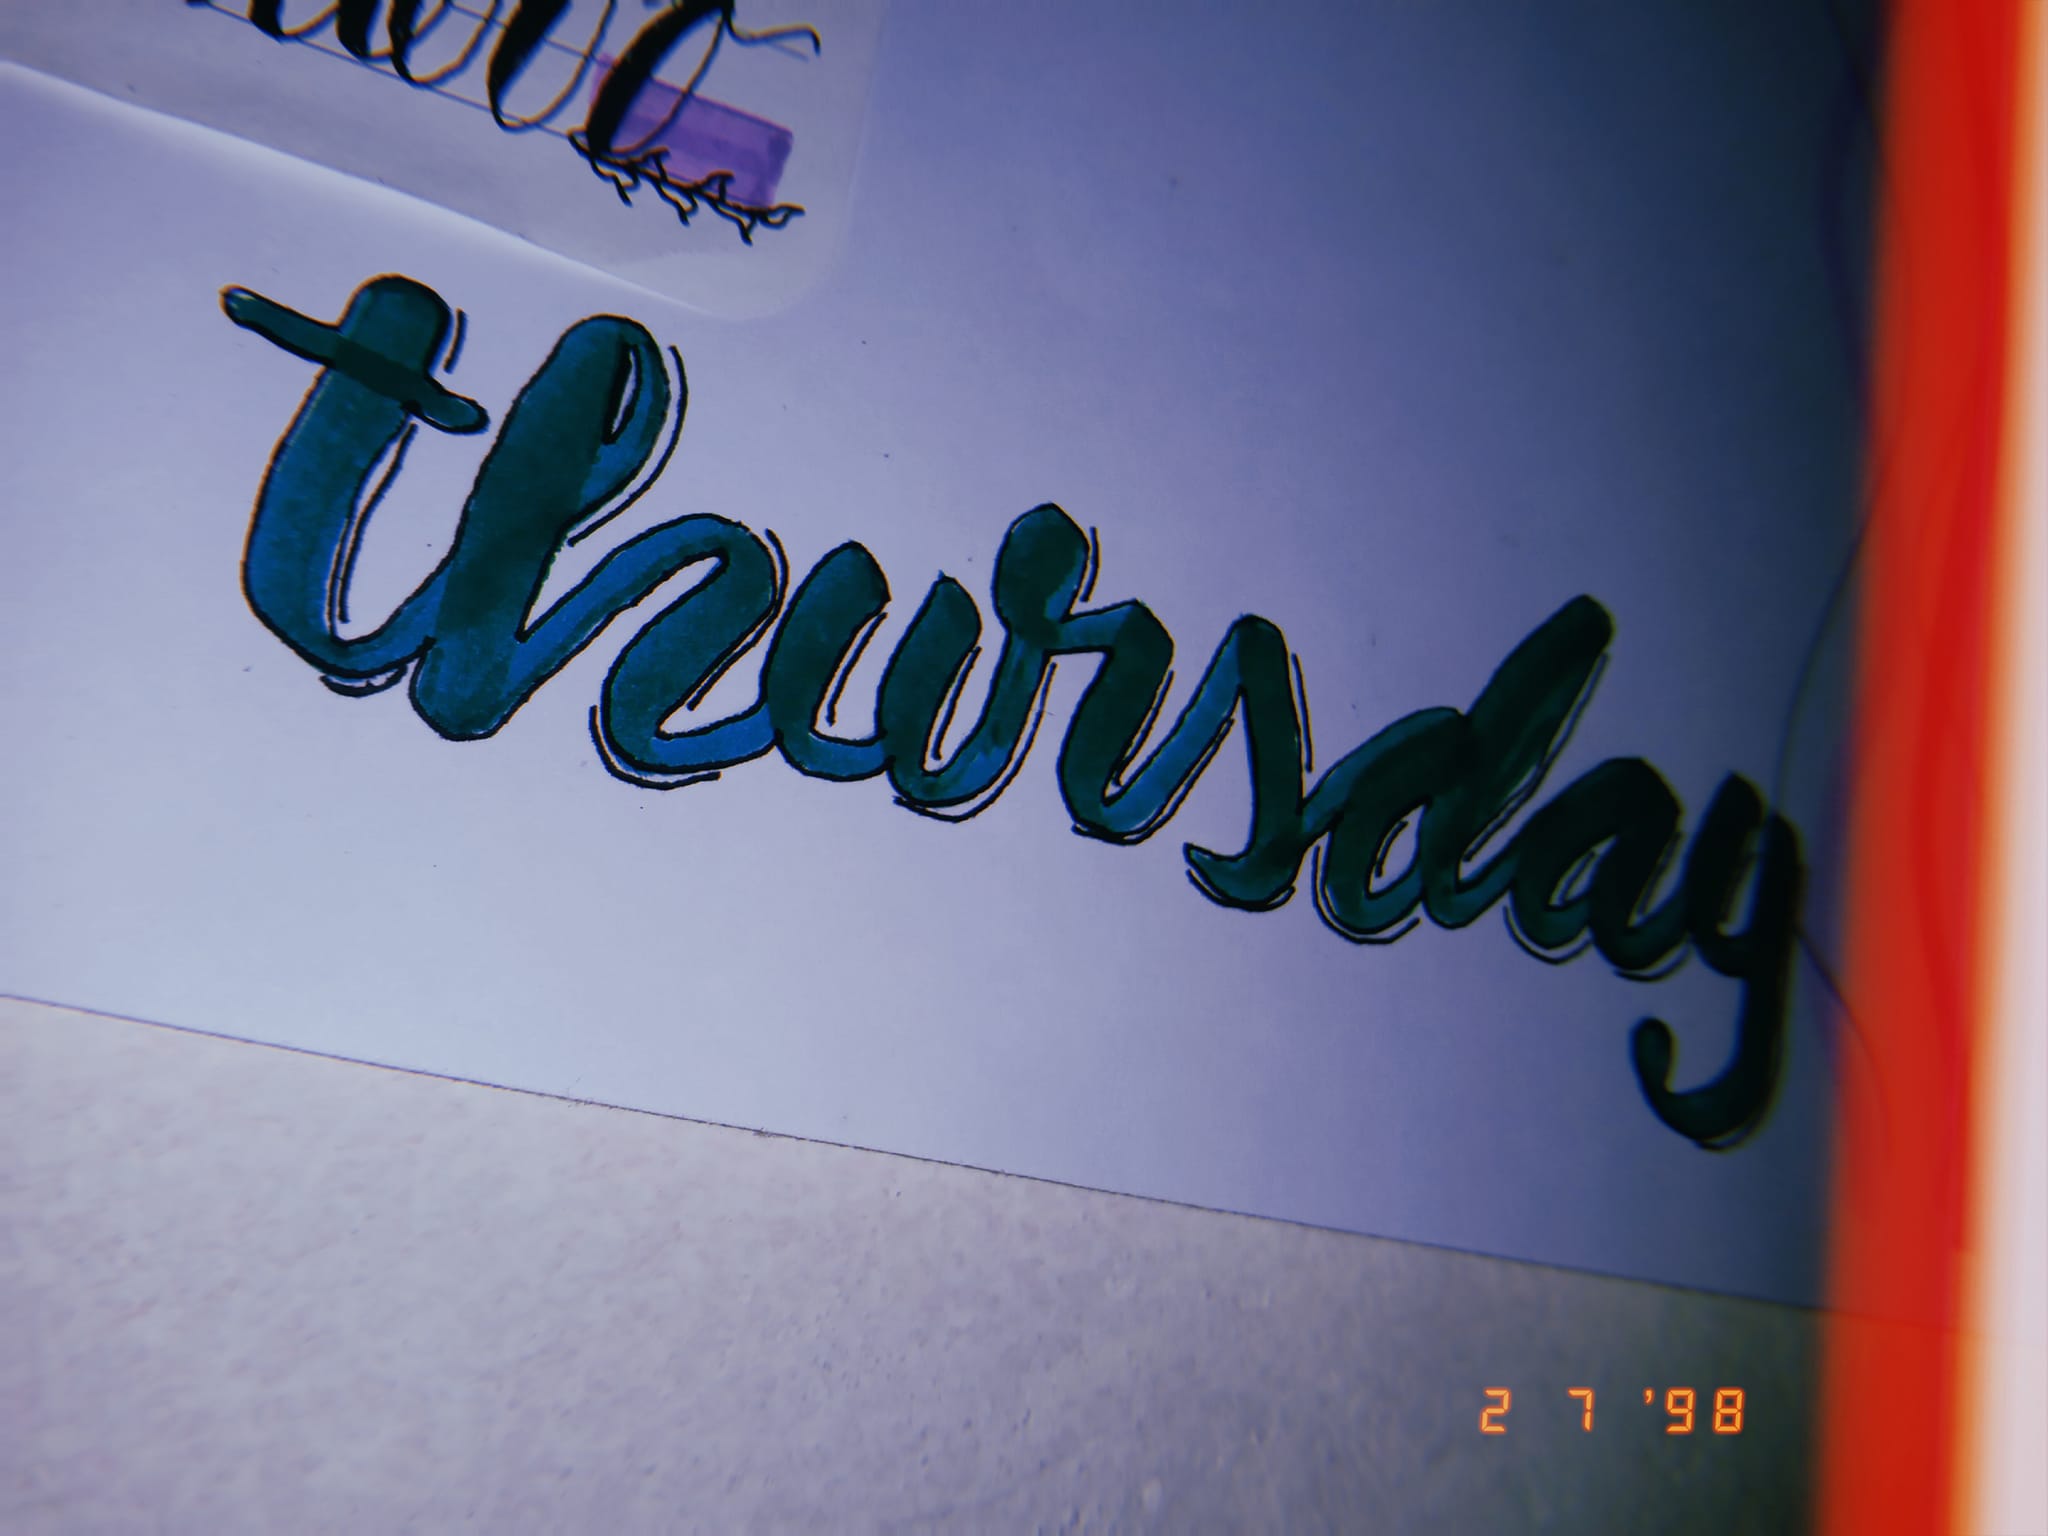 thursday
2 7 '98